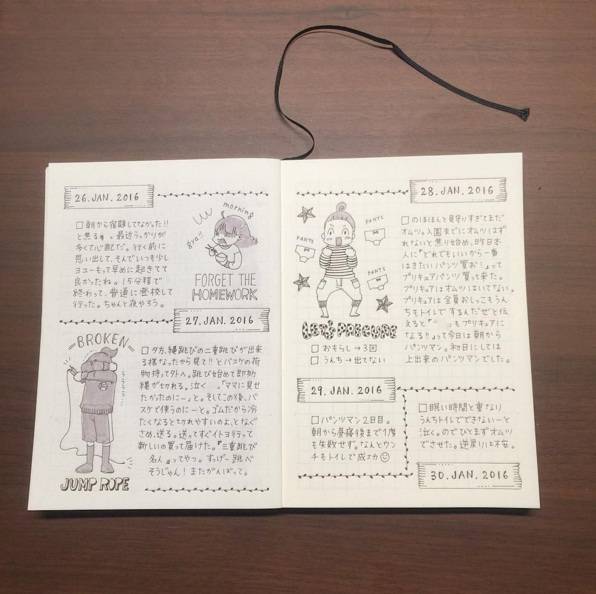 26. JAN. 2016
□ 朝から宿題してなかった!!
と焦る。最近うっかりが
多くて心配だ。行く前に
思い出して、そんでいつも少し
ヨユーもって早めに起きてて
良かったね。15分程で
終わって、普通に登校して
行った。ちゃんと夜やろう。
morning
FORGET THE
HOMEWORK
27. JAN. 2016
BROKEN
□ 夕方、縄跳びの二重跳びが出来
る様なったから見て!!とバスケの荷
物持って外へ。跳び始めて即効
縄がきれる。泣く 「ママに見せ
たかったのにー」と。そしてこの後、バ
スケで使うのにーと。ゴムだから冷
たくなるときれやすいのよ、となぐ
さめ、送る。送ってすぐイトヨ行って
新しいの買って届けた。『三重跳び
名人』ってやつ。すっげー跳べ
そうじゃん!またがんばって。
JUMP ROPE
28. JAN. 2016
□ のほほんと見守りすぎてまだ
オムツ。入園までにオムツはず
れないと焦り始め、昨日本
人に『どれでもいいから一番
はきたいパンツ買お!』って
プリキュアパンツ買って来た。
プリキュアはオムツはいてない。
プリキュアは全員おしっこもうん
ちもトイレでするんだぜと伝
えると『 もプリキュアに
なる!!』って今日は朝から
パンツマン。初日にしては
上出来のパンツマンでした。
PANTS
PANTS
PANTS
Let's PRECURE
□ おもらし→3回
□ うんち→出てない
29. JAN. 2016
□ パンツマン2日目。
朝から昼寝後まで1度
も失敗せず。なんとウン
チもトイレで成功
□ 眠い時間と重なり
うんちトイレでできないーと
泣く。のでひとまずオムツ
でさせた。逆戻りは不安。
30. JAN. 2016